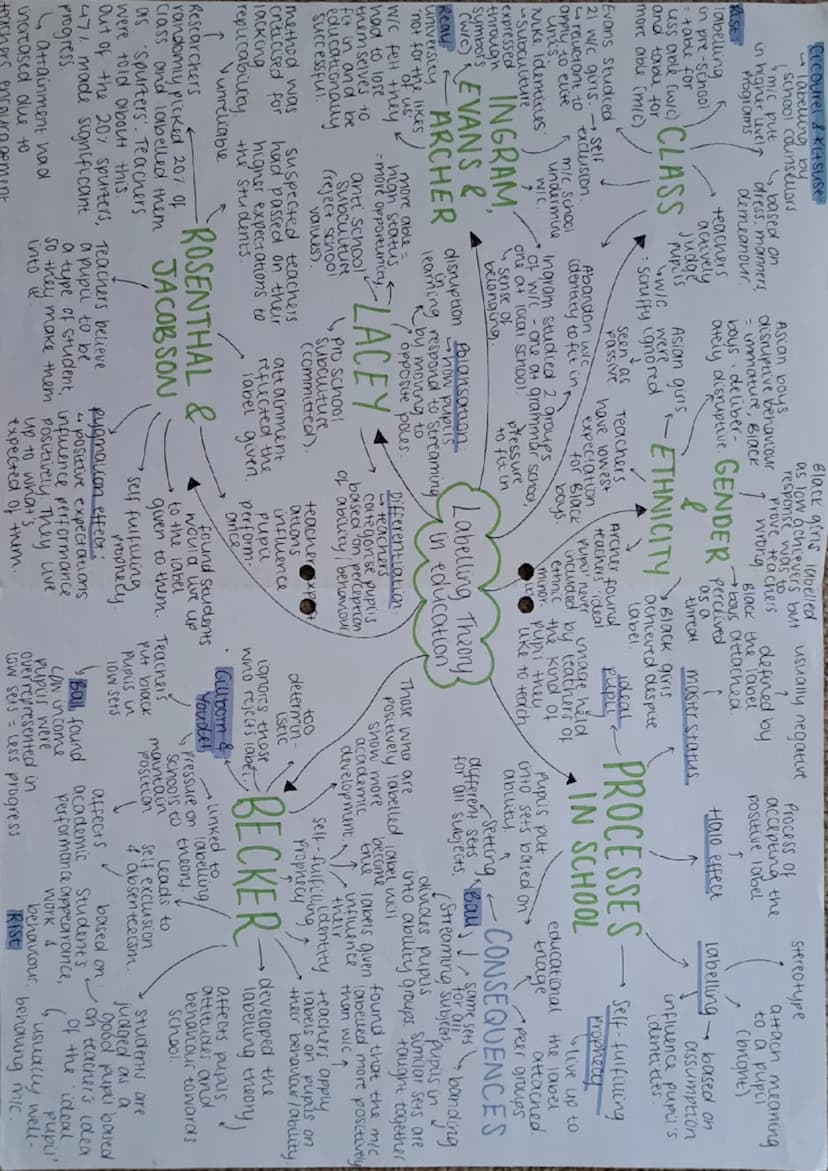 Labelling Theory
in education
CLASS
Rist
labelling
in pre-school
= table for
less able (w/c)
and table for
more able (m/c)
Cicourel & Kitsuse
↳ labelling by
school counsellors
↳ m/c put
in higher level
programs
↳ based on
dress, manners,
demeanour.
teachers
actively
judge
pupils
↳ w/c
were
ignored
= scruffy
INGRAM,
EVANS &
ARCHER
Evans studied
21 w/c girls.
↳ reluctant to
apply to elite
unis.
→ self
exclusion.
Nike identities
→ subculture
expressed
through
symbols
m/c school
undermine
w/c.
Reay
(w/c)
university
not for the likes
of us
w/c felt they
had to lose
themselves to
fit in and be
educationally
successful.
Ingram studied 2 groups
of w/c - one at grammar school,
one at local school.
sense of
belonging.
pressure
to fit in
Abandon w/c
identity to fit in
GENDER
&
ETHNICITY
Asian boys
disruptive behaviour
= immature, Black
boys = deliber-
ately disruptive.
Asian girls
seen as
passive
Teachers
have lowest
expectation
for Black
boys.
Black girls labelled
as low achievers but
response was to
prove teachers
wrong
Black
boys
perceived
as a
threat
Black girls
achieved despite
label.
Archer found
teachers ideal
pupil never
included
ethnic
minor-
LACEY
more able =
high status
= more opportunity
anti school
subculture
(reject school
values).
Pro school
subculture
(committed).
Polarisation
↳ how pupils
respond to streaming
by moving to
opposite poles.
disruption
in
learning
Differentiation:
→ teachers
categorise pupils
based on perception
of ability, behaviour
ROSENTHAL &
JACOBSON
method was
criticised for
lacking
replicability.
unreliable
Researchers
randomly picked 20% of
class and labelled them
as 'spurters'. Teachers
were told about this.
Out of the 20% spurters,
47% made significant
progress
↳ attainment had
increased due to
teachers encouragement
suspected teachers
had passed on their
higher expectations to
the students.
Teachers believe
a pupil to be
a type of student,
so they make them
into it.
attainment
reflected the
label given.
Pygmalion effect:
↳ positive expectations
influence performance
positively. They live
up to what's
expected of them.
self fulfilling
prophecy.
found students
would live up
to the label
given to them.
influence
pupil
perform-
ance
PROCESSES
IN SCHOOL
ideal
pupil
image held
by teachers of
the kind of
pupil they
like to teach
master status
defined by
the label
attached
usually negative
Halo effect
Process of
accepting the
positive label
stereotype
labelling → based on
assumption
influence pupil's
identities.
attach meaning
to a pupil
(bright)
Self-fulfilling
prophecy
↳ live up to
the label
attached
educational
triage
CONSEQUENCES
pupils put
into sets based on
ability.
setting
different sets
for all subjects.
Ball
Streaming
same sets
for all
subjects.
divides pupils
into ability groups
banding
pupils in
similar sets are
taught together
peer groups
BECKER
too
determin-
istic
ignores those
who reject label.
Those who are
positively labelled will
show more
academic
development
become
the labels given
influence
their
identity
Self-fulfilling
prophecy
found that the m/c
labelled more positively
than w/c
teachers apply
labels on pupils on
their behaviour/ability
developed the
labelling theory
affects pupils
attitudes and
behaviour towards
school.
students are
judged as a
'good pupil' based
on teacher's idea
of the 'ideal
pupil'
↳ usually well-
behaving m/c.
based on
student's
appearance,
work &
behaviour.
Rist
affects
academic
performance
Gillborn &
Youdell
linked to
labelling
theory.
Pressure on
schools to
maintain
position
leads to
self exclusion
& absenteeism.
Teachers
put black
pupils in
low sets
Ball found
low income
pupils were
overrepresented in
low sets = less progress